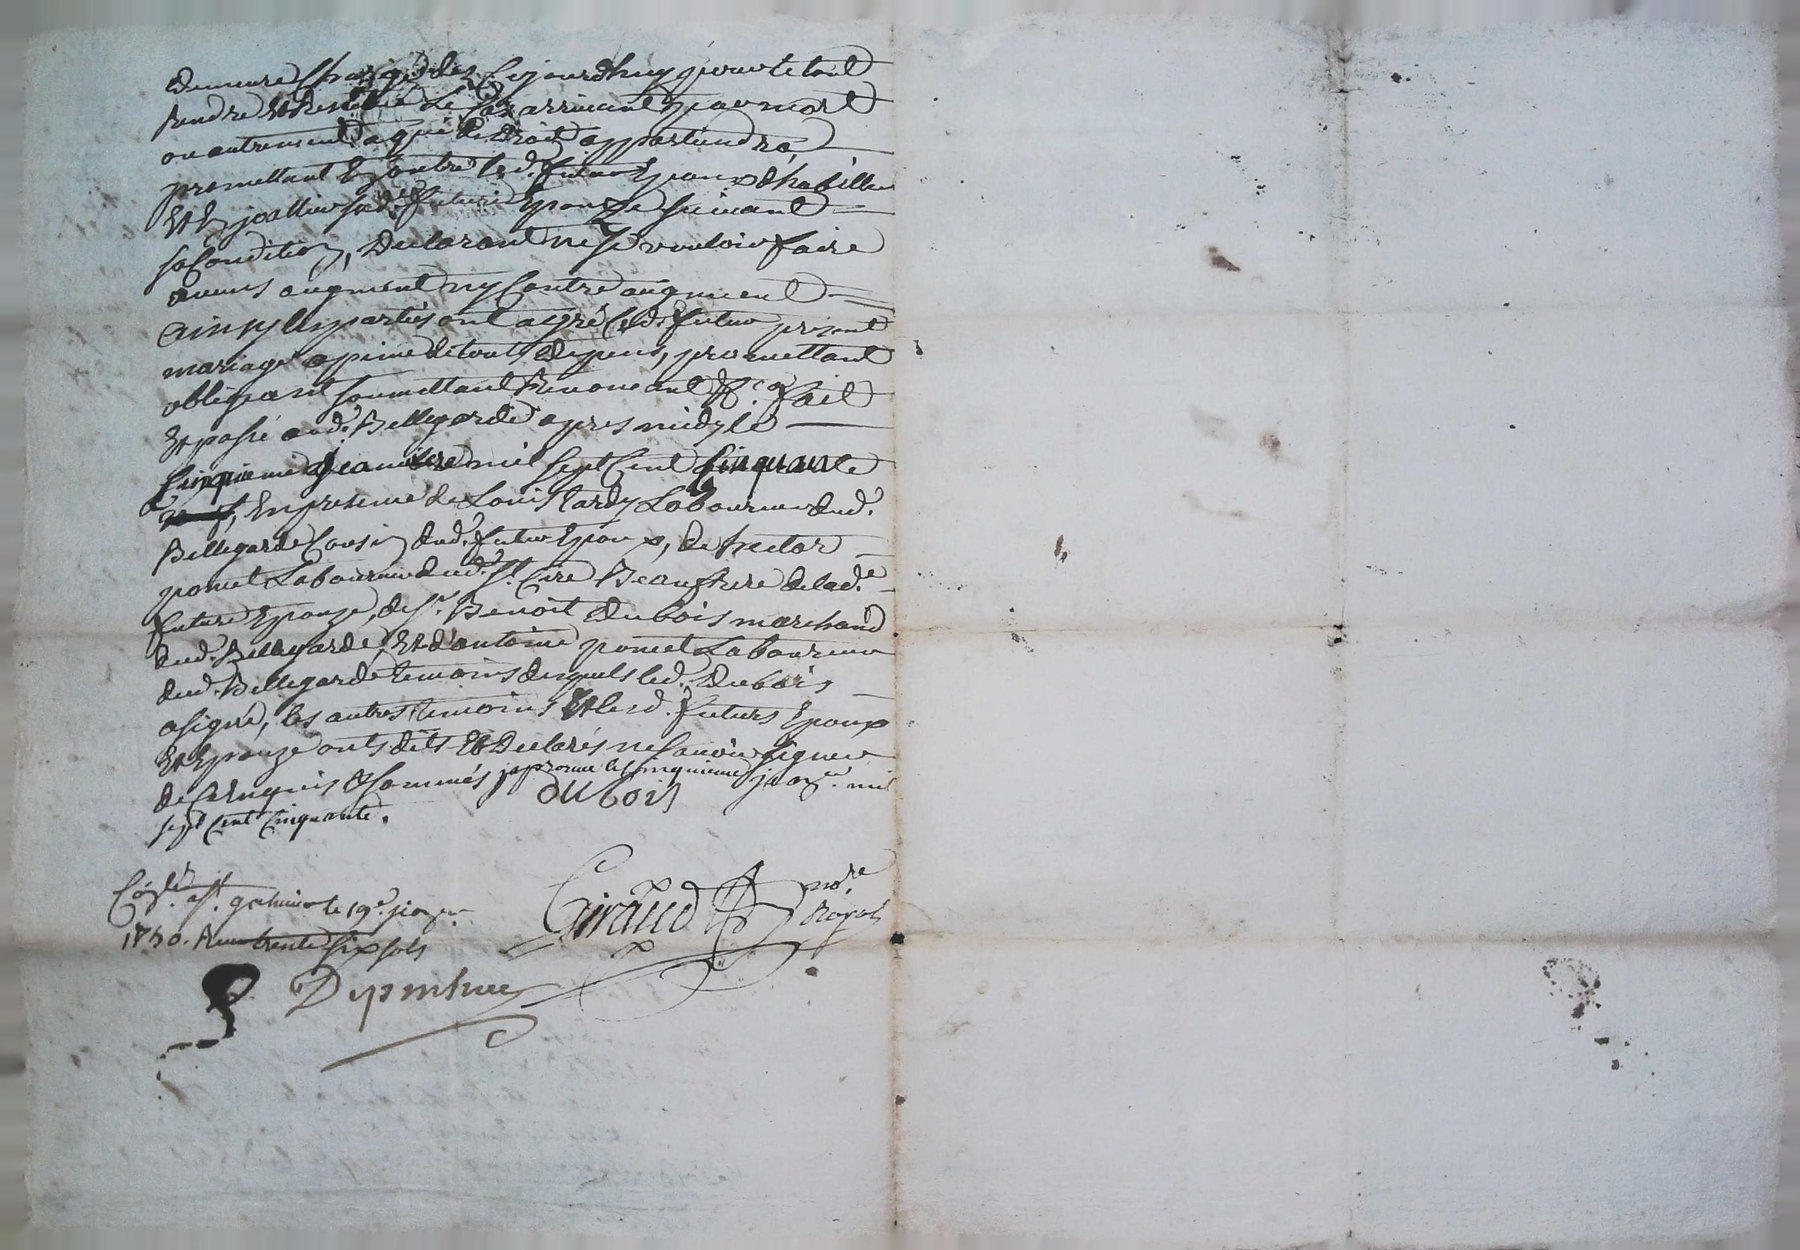 demeure chargé dès cejourdhuy pour le tout
rendre et restituer le cas arrivant par mort
ou autrement a qui de droit appartiendra
promettant en outre led. futur Epoux d'habiller
Et Enjoallier sad.e future Epouze suivant
sa Condition, Declarant ne se vouloir faire
aucuns augment ny Contre augment
ainsy les parties ont agréé led. futur present
mariage a peine de touts depens, promettant
obligeant soumettant Renonceant &c.a fait
Et passé aud. Bellegarde apres midy le
Cinquieme Janvier mil sept Cent Cinquante
En presence de Louis tardy Laboureur dud.
Bellegarde Cousin dud. futur Epoux, de hector
ponet Laboureur dud. St. Cire Beaufrere de lad.e
future Epouze, de Sr. Benoit Dubois marchand
dud. Bellegarde, Et d'antoine ponet Laboureur
dud. Bellegarde temoins desquels led. Dubois
a signé, les autres temoins Et lesd. futurs Epoux
Et Epouze onts dits Et Declarés ne savoir signer
de ce Enquis & sommés japrouve le cinquieme janv.er mil
sept Cent Cinquante. dubois
Con.lé a St. le 19.e janv.er
1750. Reçu trente six sols
Giraud no.re
Royal